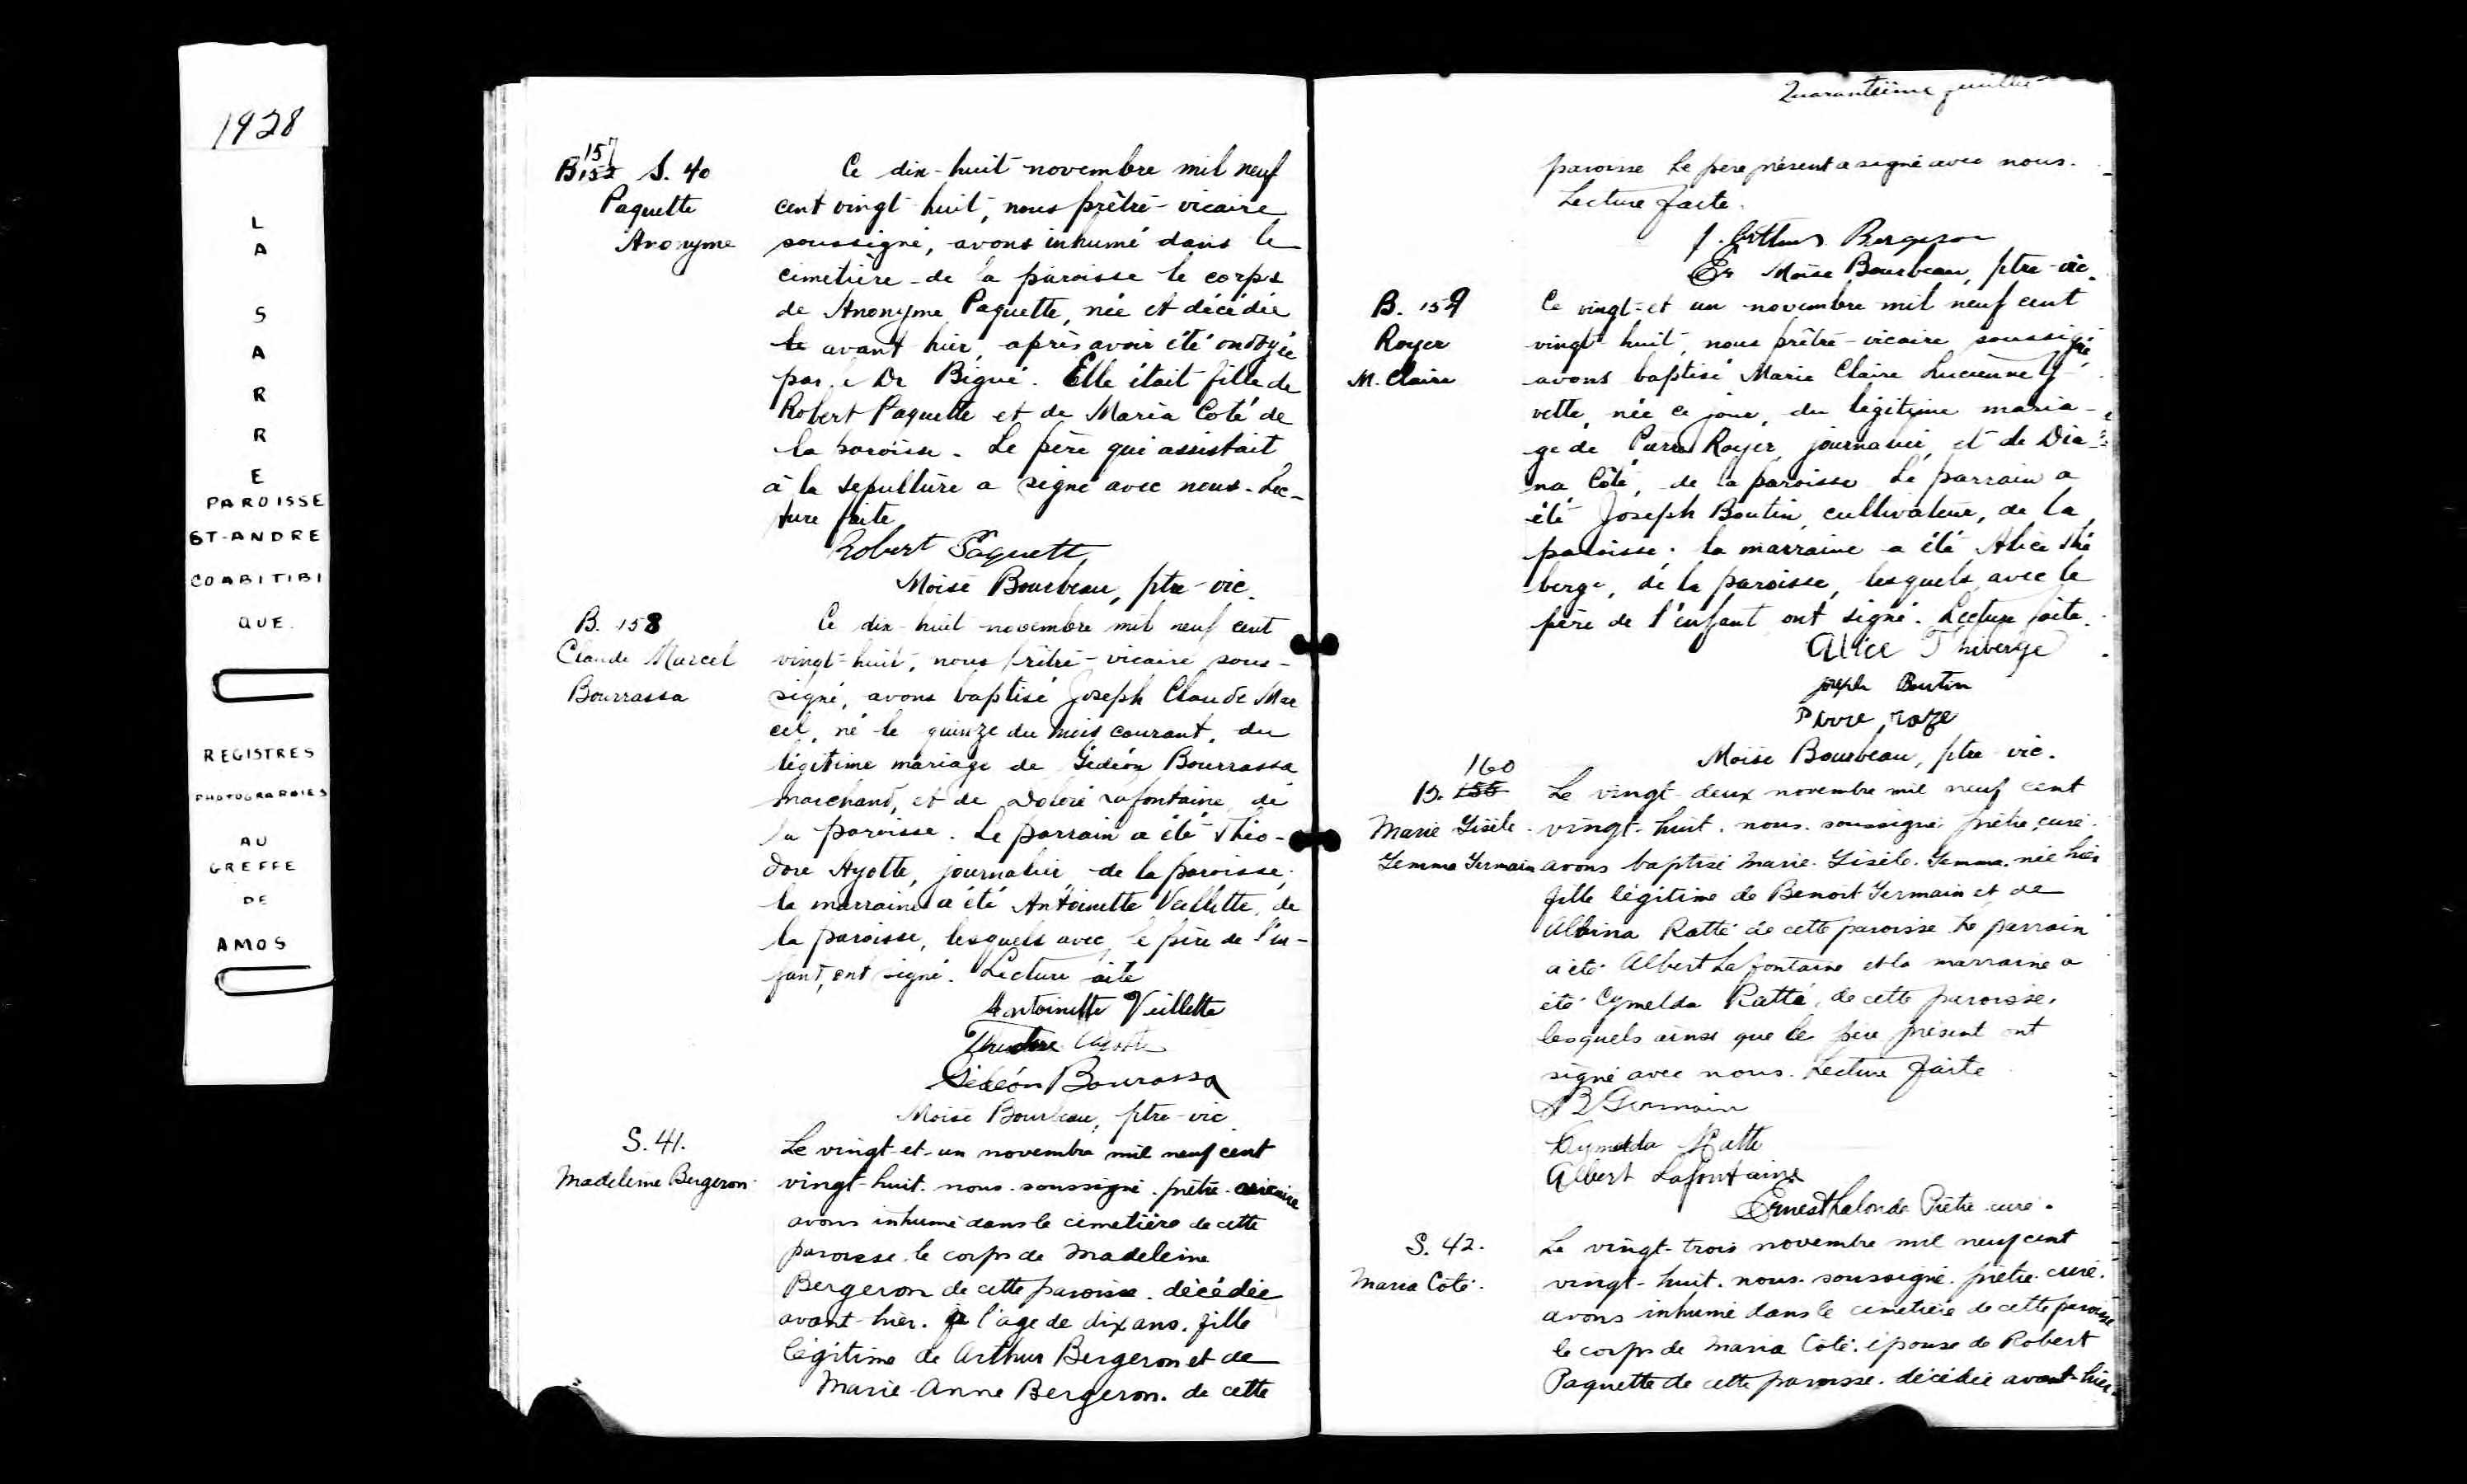 1928
L
A
S
A
R
R
E
PAROISSE
ST-ANDRE
CO ABITIBI
QUE.
REGISTRES
PHOTOGRAPHIES
AU
GREFFE
DE
AMOS
157
B 152 S. 40
Paquette
Anonyme
Ce dix-huit novembre mil neuf
cent vingt-huit, nous prêtre-vicaire
soussigné, avons inhumé dans le
cimetière de la paroisse le corps
de Anonyme Paquette, née et décédée
le avant hier, après avoir été ondoyée
par le Dr Bigué. Elle était fille de
Robert Paquette et de Maria Coté de
la paroisse. Le père qui assistait
à la sépulture a signé avec nous. Lec-
ture faite
Robert Paquett
Moïse Bourbeau, ptre-vic.
B. 158
Claude Marcel
Bourrassa
Ce dix-huit novembre mil neuf cent
vingt-huit, nous prêtre-vicaire sous-
signé, avons baptisé Joseph Claude Mar
cel, né le quinze du mois courant, du
légitime mariage de Gédéon Bourrassa
marchand, et de Doloré Lafontaine, de
la paroisse. Le parrain a été Théo-
dore Ayotte, journalier, de la paroisse;
la marraine a été Antoinette Veillette, de
la paroisse, lesquels avec le père de l'en-
fant, ont signé. Lecture faite
Antoinette Veillette
Theodore Ayotte
Gédéon Bourassa
Moïse Bourbeau, ptre-vic
S. 41.
Madeleine Bergeron
Le vingt-et-un novembre mil neuf cent
vingt-huit. nous. soussigné. prêtre. vicaire
avons inhumé dans le cimetière de cette
paroisse. le corps de Madeleine
Bergeron de cette paroisse. décédée
avant-hier. à l'age de dix ans. fille
légitime de Arthur Bergeron et de
Marie-Anne Bergeron. de cette
Quarantième feuillet
paroisse Le père présent a signé avec nous.
Lecture faite.
J. Arthur Bergeron
Moïse Bourbeau, ptre-vic.
B. 159
Royer
M. Claire
Ce vingt-et un novembre mil neuf cent
vingt-huit, nous prêtre-vicaire soussigné
avons baptisé Marie Claire Lucienne Y-
vette, née ce jour, du légitime maria-
ge de Pierre Royer, journalier, et de Dia-
na Côté, de la paroisse. Le parrain a
été Joseph Boutin, cultivateur, de la
paroisse; la marraine a été Alice Thé
berge, de la paroisse, lesquels avec le
père de l'enfant ont signé. Lecture faite.
Alice Thiberge
joseph Boutin
Moïse Bourbeau, ptre-vic.
160
B. 155
Marie Gisèle.
Gemma Germain
Le vingt-deux novembre mil neuf cent
vingt-huit. nous. soussigné prêtre, curé.
avons baptisé Marie. Gisèle. Gemma. née hier
fille légitime de Benoit Germain et de
Albina Ratté de cette paroisse. Le parrain
a été Albert Lafontaine et la marraine a
été Cymelda Ratté, de cette paroisse.
lesquels ainsi que le père présent ont
signé avec nous. Lecture faite
B Germain
Cymelda Ratte
Albert Lafontaine
Ernest Lalonde Prêtre curé.
S. 42.
Maria Côté.
Le vingt-trois novembre mil neuf cent
vingt-huit. nous. soussigné. prêtre. curé.
avons inhumé dans le cimetière de cette paroisse
le corps de Maria Côté. épouse de Robert
Paquette de cette paroisse. décédée avant-hier